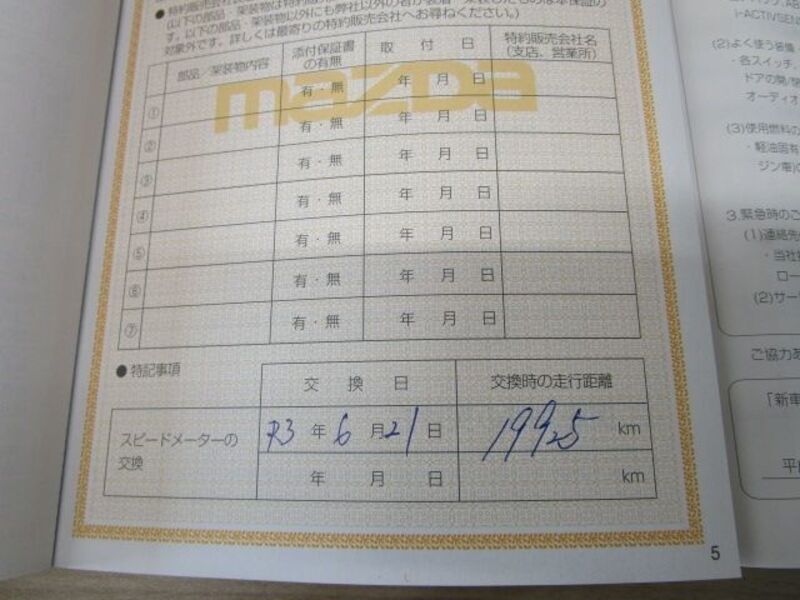 ● 特約販売会社
(以下の部品・架装物は特約販
す。以下の部品・架装物以外にも弊社以外の者が装着・架装したものは本保証の
対象外です。詳しくは最寄りの特約販売会社へお尋ねください。)
部品/架装物内容 添付保証書の有無 取付日 特約販売会社名(支店、営業所)
mazda
① 有・無 年 月 日
② 有・無 年 月 日
③ 有・無 年 月 日
④ 有・無 年 月 日
⑤ 有・無 年 月 日
⑥ 有・無 年 月 日
⑦ 有・無 年 月 日
● 特記事項
交換日 交換時の走行距離
スピードメーターの
交換
R3 年 6 月 21 日 19925 km
年 月 日 km
5
i-ACTIVSEN
(2)よく使う装備
・各スイッチ、
ドアの開/閉
オーディオ
(3)使用燃料の
・軽油固有
ジン車)の
3.緊急時のご
(1)連絡先
・当社
ロー
(2)サー
ご協力あ
「新車